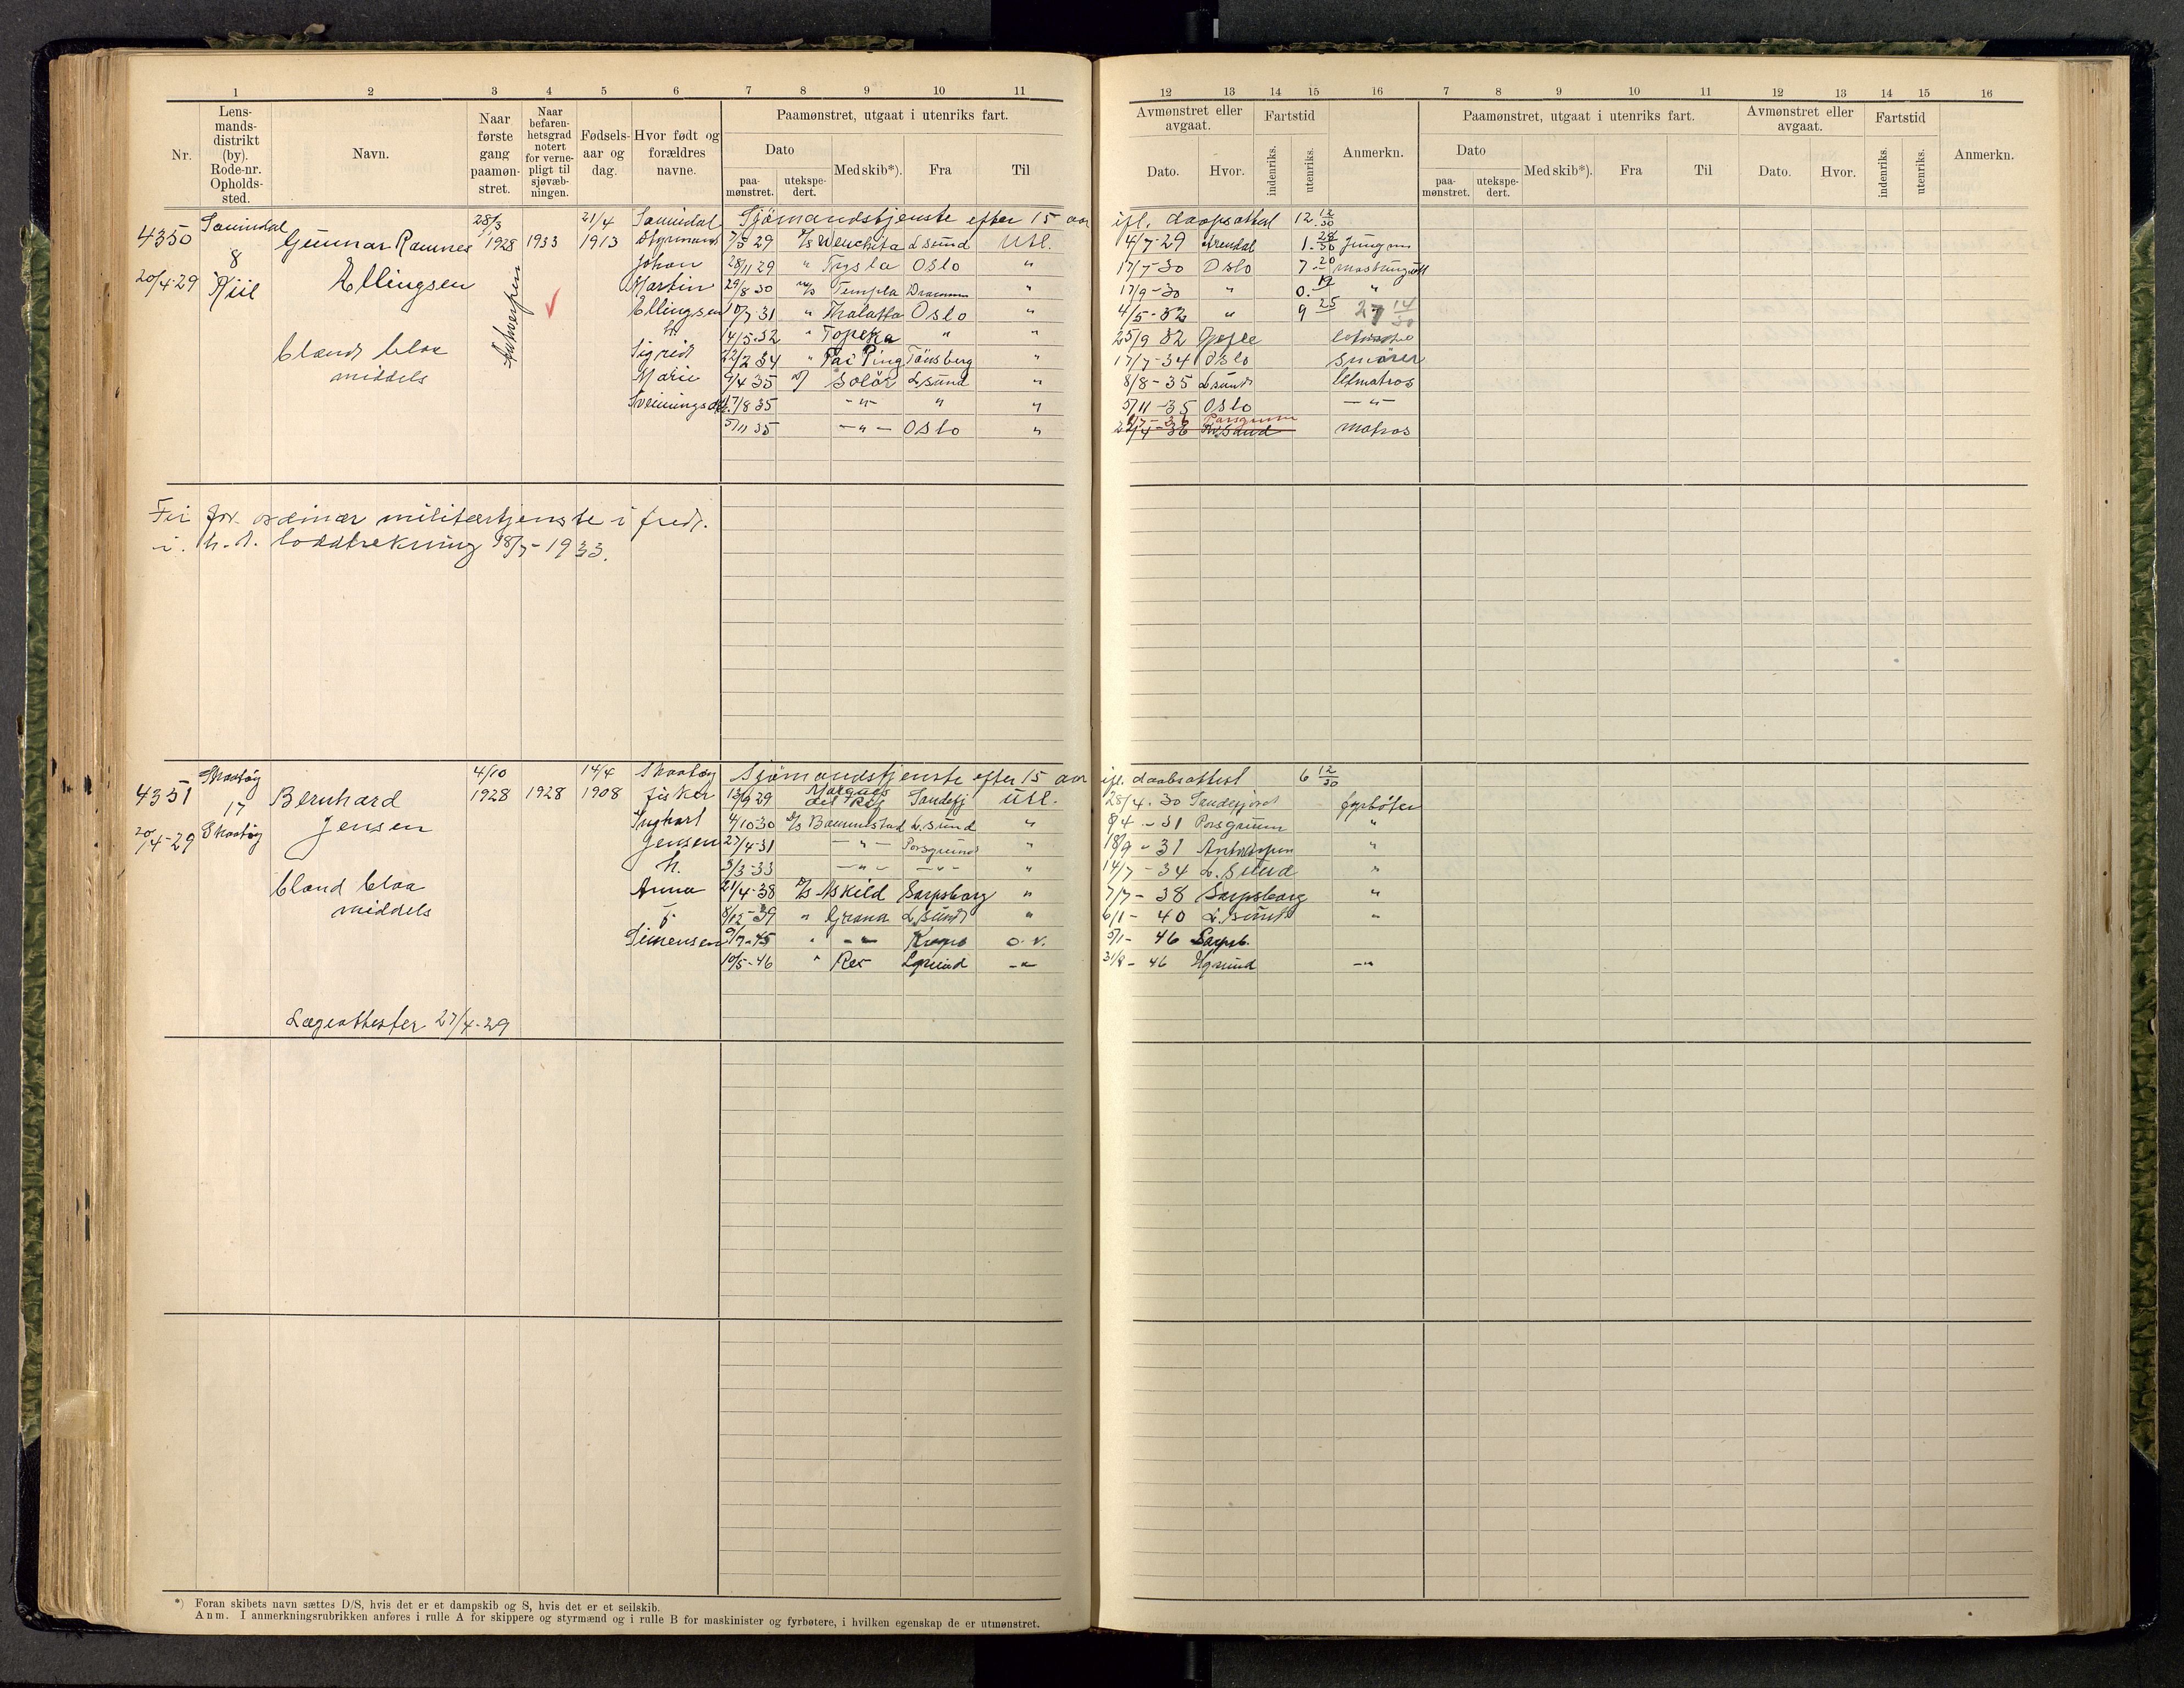 1 2 3 4 5 6 7 8 9 10 11
Nr.
Lens-
mands-
distrikt
(by).
Rode-nr.
Opholds-
sted.
Navn.
Naar
første
gang
paamøn-
stret.
Naar
befaren-
hetsgrad
notert
for verne-
pligt til
sjøvæb-
ningen.
Fødsels-
aar og
dag.
Hvor født og
forældres
navne.
Paamønstret, utgaat i utenriks fart.
Dato
paa-
mønstret.
utekspe-
dert.
Med skib*).
Fra
Til
4350
20/4-29
Sannidal
8
Kiil
Gunnar Ramnes
Ellingsen
blond blaa
middels
28/3
1928
Antwerpen
1933
21/4
1913
Sannidal
Styrmand
Johan
Martin
Ellingsen
h
Sigrid
Marie
Sjømandstjenste efter 15 aar
7/5 29 M/S Wenchita L.sund Utl.
28/11 29 " Trysla Oslo "
29/8 30 M/S Templa Drammen "
10/7 31 " Thalatta Oslo "
14/5-32 " Topeka " "
22/2 34 " Tai Ping Tönsberg "
9/4 35 Solör L.sund "
17/8 35 -"- " "
5/11 35 -"- Oslo "
Fri for ordinær militærtjenste i fred.
i. h. t. loddtrekning 18/7-1933.
4351
20/4-29
Skaatøy
17
Skaatøy
Bernhard
Jensen
blond blaa
middels
Lægeattester 27/4-29
4/10
1928
1928
14/4
1908
Skaatøy
fisker
Inghart
Jensen
h.
Anna
f.
Simensen
Sjømandstjenste efter 15 aar
13/9 29 Sandefj Utl.
4/10-30 D/S Bommestad L.sund "
27/4-31 -"- Porsgrund "
3/3-33 -"- -"- "
21/4-38 D/S Askild Sarpsborg "
8/12-39 " Grana L.sund "
9/7-45 " -"- Kragerø o. v.
10/5-46 " Rex -"-
*) Foran skibets navn sættes D/S, hvis det er et dampskib og S, hvis det er et seilskib.
Anm. I anmerkningsrubrikken anføres i rulle A for skippere og styrmænd og i rulle B for maskinister og fyrbøtere, i hvilken egenskap de er utmønstret.
12 13 14 15 16 7 8 9 10 11 12 13 14 15 16
Avmønstret eller
avgaat.
Dato.
Hvor.
Fartstid
indenriks.
utenriks.
Anmerkn.
Paamønstret, utgaat i utenriks fart.
Dato
paa-
mønstret.
utekspe-
dert.
Med skib*).
Fra
Til
Avmønstret eller
avgaat.
Dato.
Hvor.
Fartstid
indenriks.
utenriks.
Anmerkn.
ifl. daapsattest 12 12/30
4/7-29 Arendal 1. 28/30 Jungm
17/7-30 Oslo 7 20
17/9-30 " 0. 19 "
4/5-32 " 9 25 27 14/30
25/9 32
17/7-34 Oslo smører
8/8-35 L.sund lettmatros
5/11-35 Oslo -"-
Porsgrunn
22/4-36 Kr.sand matros
ifl. daabsattest 6 12/30
28/4. 30 Sandefjord fyrbøter
8/4 - 31 Porsgrunn "
18/9 - 31 Antwerpen "
14/7 - 34 L.sund "
7/7 - 38 Sarpsborg "
6/1 - 40 L.sund "
5/1- 46 Sarpsb.
31/8- 46 -"-